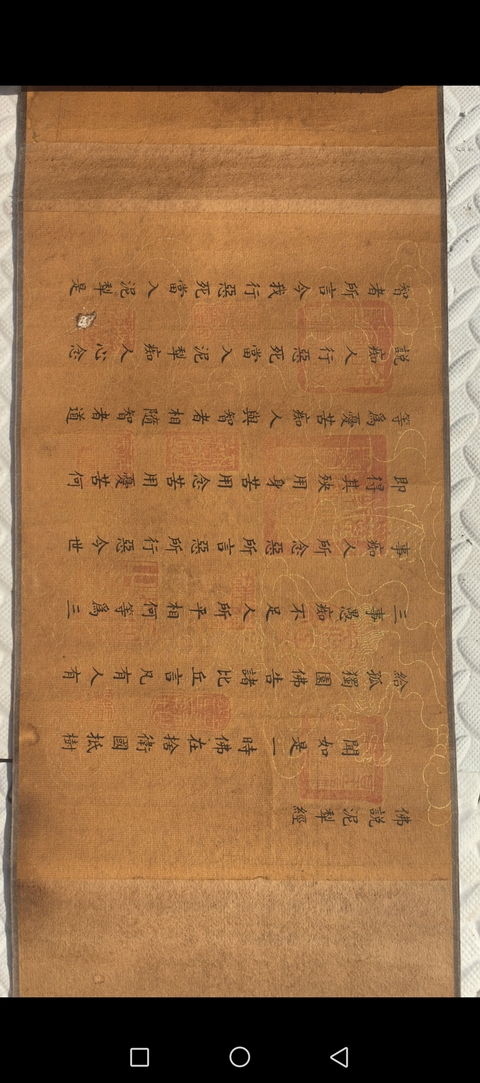 佛說泥犁經
聞如是一時佛在捨衛國抵樹
給孤獨園佛告諸比丘言凡有人有
三事愚痴不足人所平相何等為三
事痴人所念惡所言惡所行惡今世
即得其殃用身苦用念苦用憂苦何
等為憂苦痴人與智者相隨智者道
說痴人行惡死當入泥犁痴人心念
智者所言今我行惡死當入泥犁是